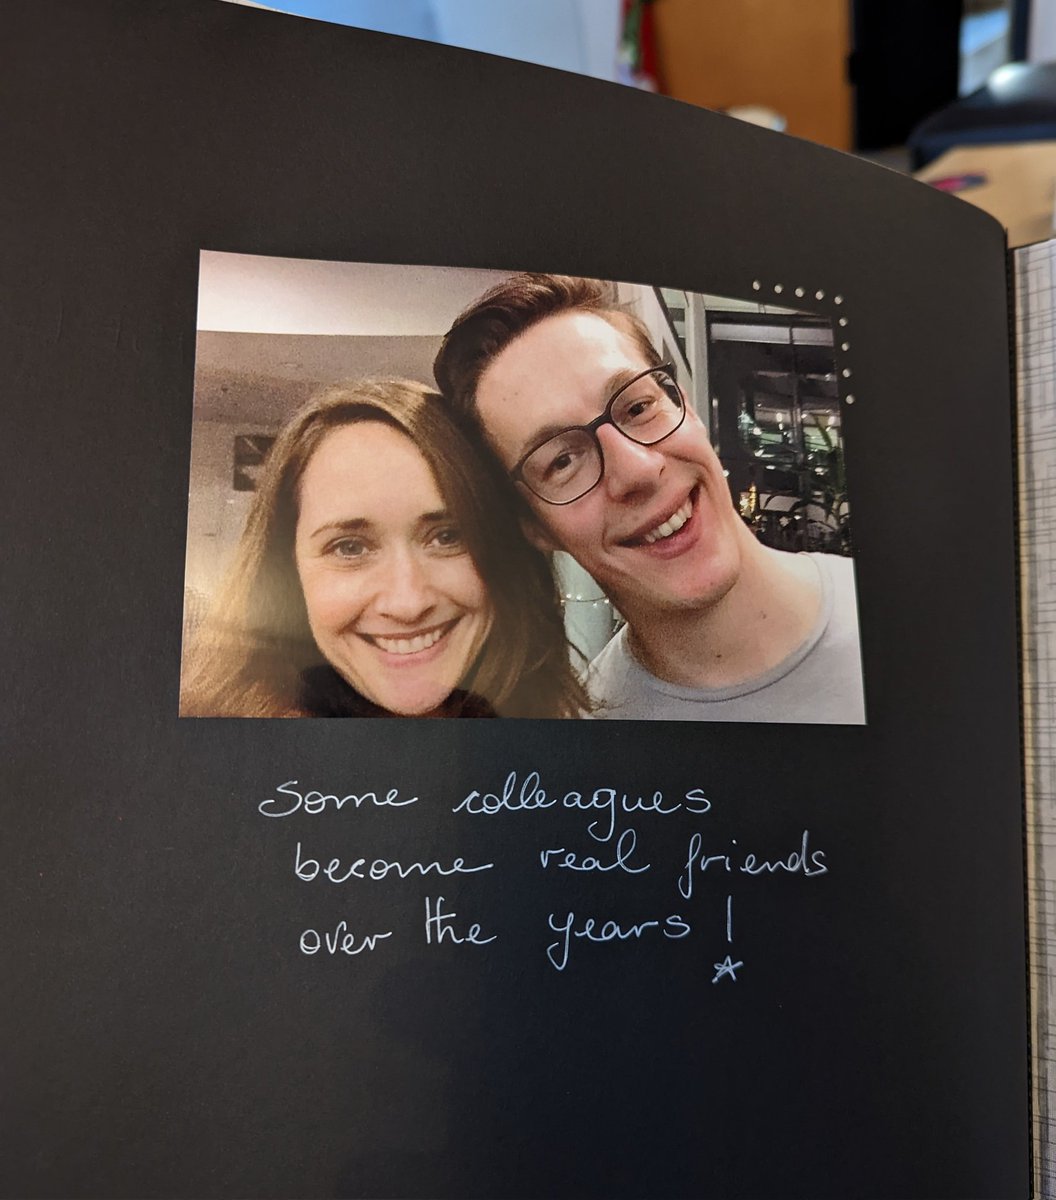 Some colleagues
become real friends
over the years!